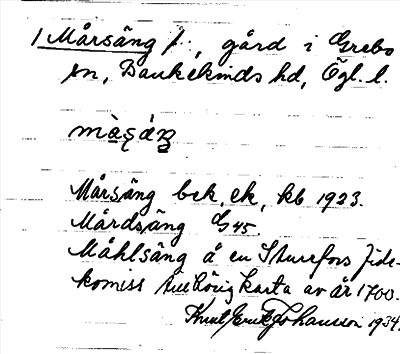 1 Mårsäng /:, gård i Grebo
sn, Bankekinds hd, Ögl. l.
Mårsäng bek, ek, kb 1923.
Mårdsäng G 45.
Måhlsäng å en Sturefors fide-
komiss tillhörig karta av år 1700.
Knut Erik Johansson 1934.